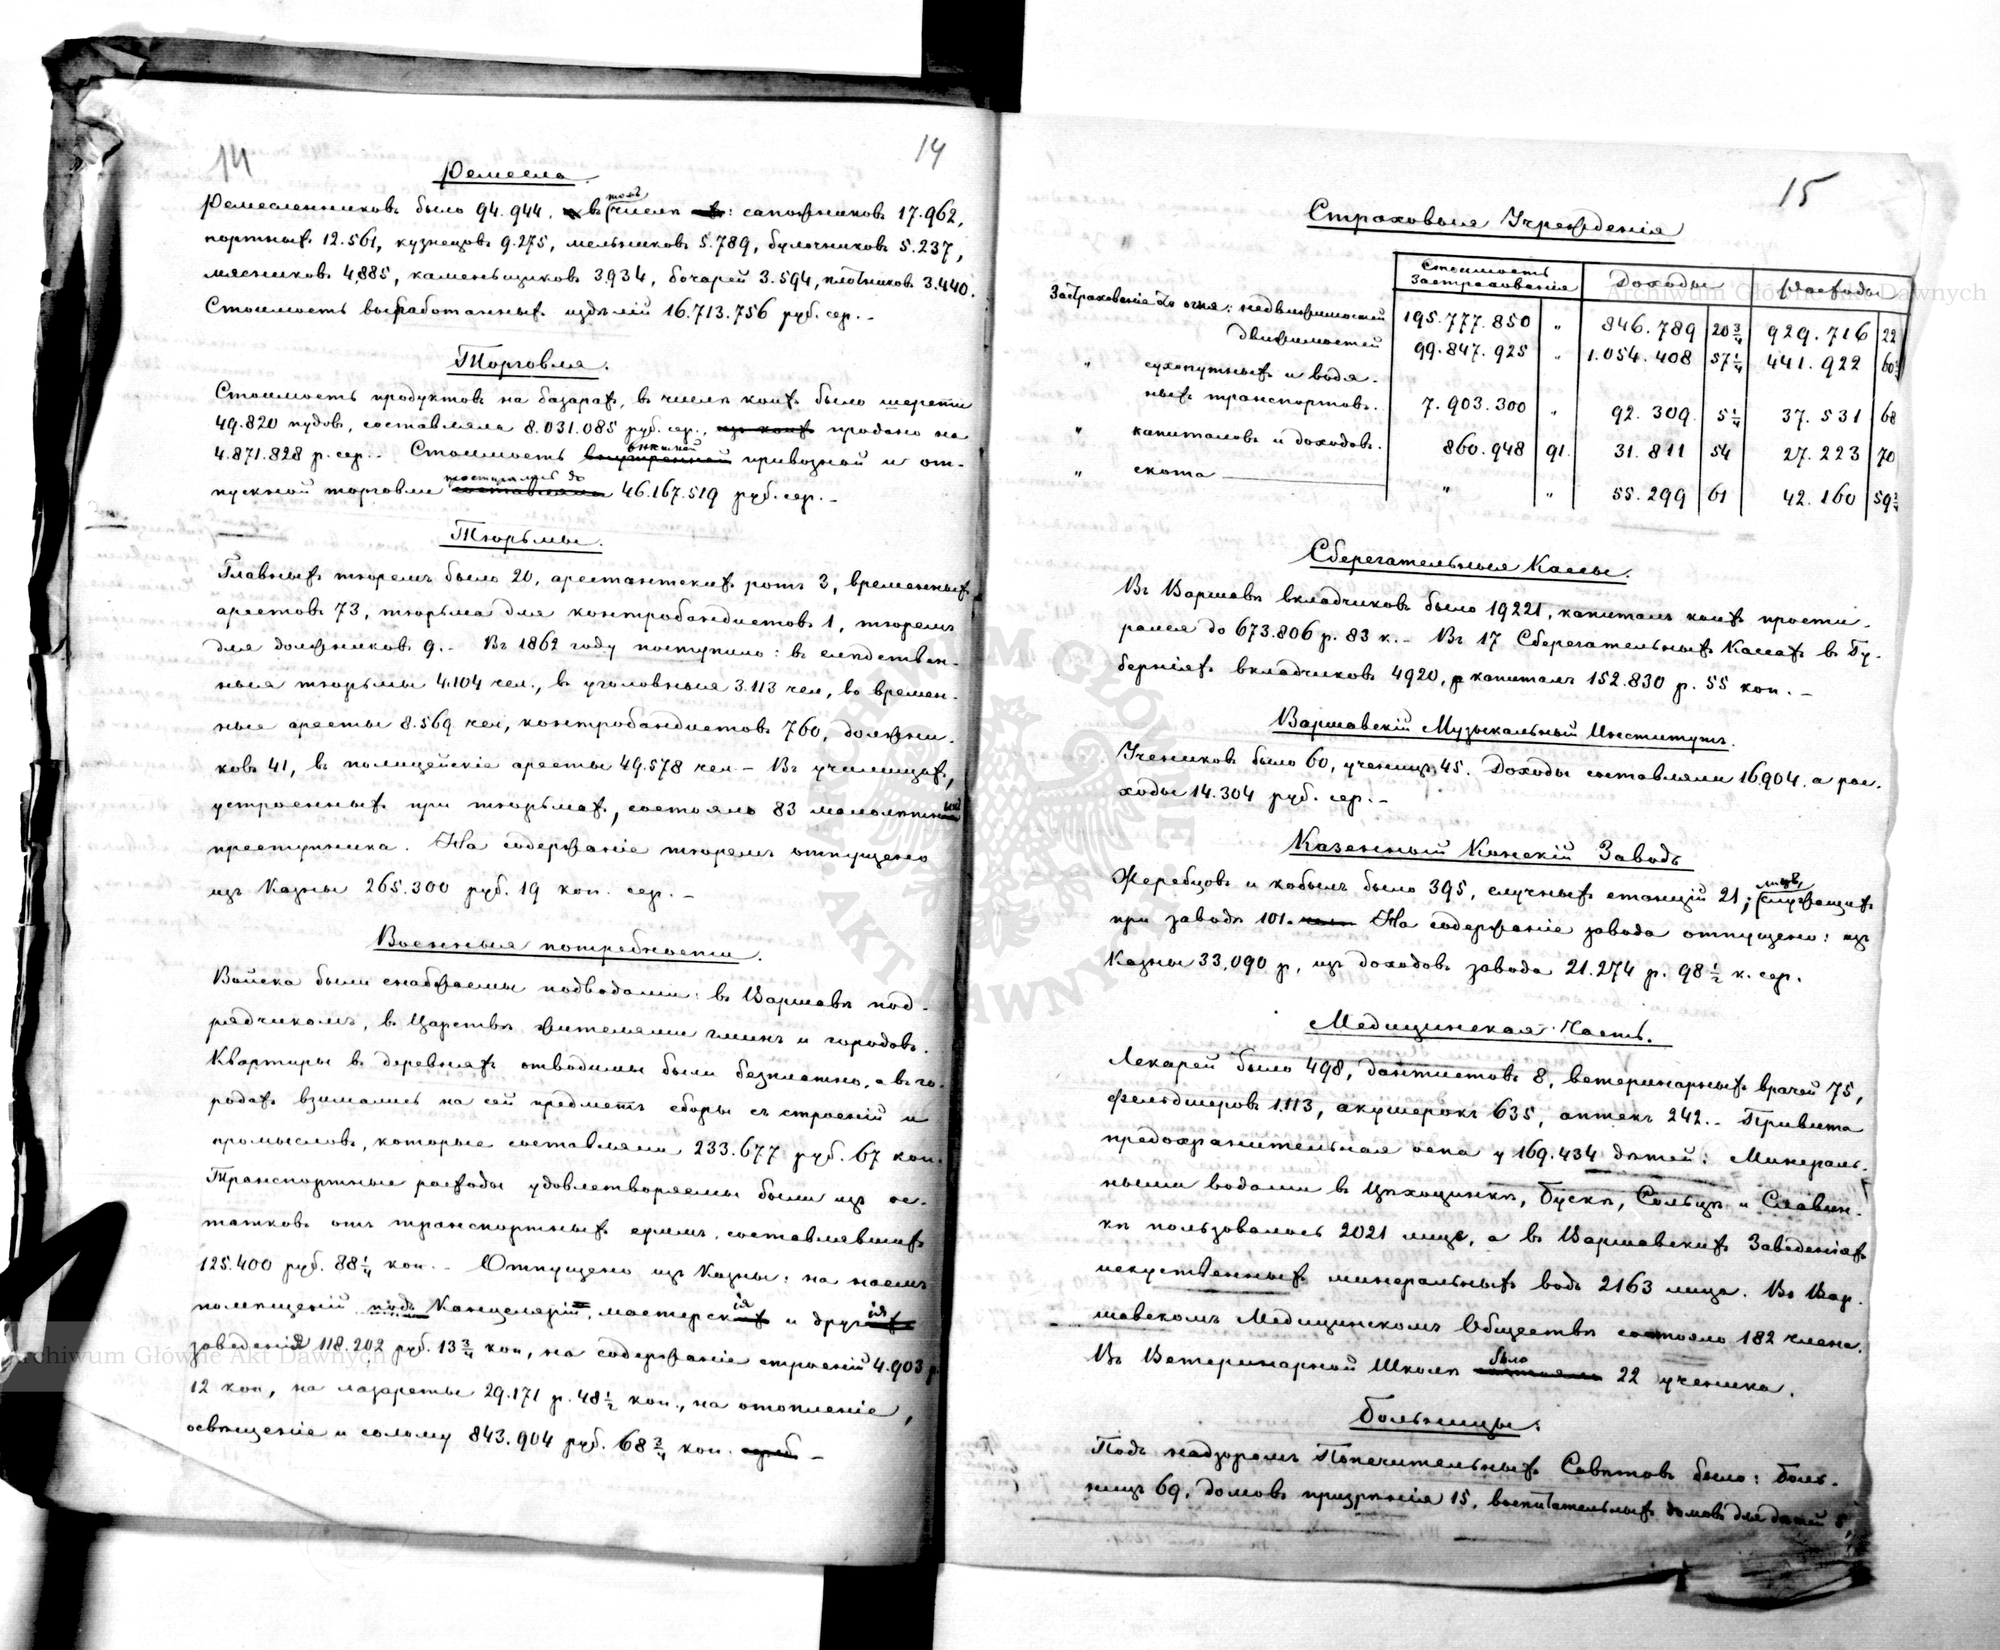 14
14
Ремесла.
Ремесленниковъ было 94.944, въ томъ числѣ: сапожниковъ 17.962,
портныхъ 12.561, кузнецовъ 9.275, мельниковъ 5.789, булочниковъ 5.237,
мясниковъ 4.885, каменьщиковъ 3.934, бочарей 3.594, плотниковъ 3.440.
Стоимость выработанныхъ издѣлій 16.713.756 руб. сер. –
Торговля.
Стоимость продуктовъ на базарахъ, въ числѣ коихъ было шерсти
49.820 пудовъ, составляла 8.031.085 руб. сер., изъ коихъ продано на
4.871.828 р. сер. – Стоимость внутренней внѣшней привозной и от-
пускной торговли составляла простиралась до 46.167.519 руб. сер. –
Тюрьмы.
Главныхъ тюремъ было 20, арестантскихъ ротъ 3, временныхъ
арестовъ 73, тюрьма для контробандистовъ 1, тюремъ
для должниковъ 9. – Въ 1862 году поступило: въ слѣдствен-
ныя тюрьмы 4.104 чел., въ уголовныя 3.113 чел, во времен-
ные аресты 8.569 чел, контробандистовъ 760, должни-
ковъ 41, въ полицейскіе аресты 49.578 чел – Въ училищахъ,
устроенныхъ при тюрьмахъ, состояло 83 малолѣтныхъ
преступника. На содержаніе тюремъ отпущено
изъ Казны 265.300 руб. 19 коп. сер. –
Военныя потребности.
Войска были снабжаемы подводами: въ Варшавѣ под-
рядчикомъ, въ Царствѣ жителями гминъ и городовъ.
Квартиры въ деревняхъ отводимы были безплатно, а въ го-
родахъ взимались на сей предметъ сборы съ строеній и
промысловъ, которые составляли 233.677 руб. 67 коп.
Транспортные расходы удовлетворяемы были изъ ос-
татковъ отъ транспортныхъ суммъ, составлявшихъ
125.400 руб. 88 1/4 коп. – Отпущено изъ Казны: на наемъ
помѣщеній подъ Канцеляріи, мастерскія и другія
заведенія 118.202 руб. 13 3/4 коп, на содержаніе строеній 4.903 р.
12 коп, на лазареты 29.171 р. 48 1/2 коп., на отопленіе,
освѣщеніе и солому 843.904 руб. 68 3/4 коп. –
15
Страховыя Учрежденія
Стоимость Застрахованія Доходы Расходы
Застрахованіе от огня: недвижимостей 195.777.850 „ 846.789 20 3/4 929.716 22
движимостей 99.847.925 „ 1.054.408 57 1/4 441.922 60
„ сухопутныхъ и водя-
ныхъ транспортовъ. 7.903.300 „ 92.309 5 1/4 37.531 68
„ капиталовъ и доходовъ. 860.948 91 31.811 54 27.223 70
„ скота „ „ 55.299 61 42.160 59 3/4
Сберегательныя Кассы.
Въ Варшавѣ вкладчиковъ было 19221, капиталъ коихъ прости-
рался до 673.806 р. 83 к. – Въ 17 Сберегательныхъ Кассахъ въ Гу-
берніяхъ вкладчиковъ 4920, капиталъ 152.830 р. 55 коп. –
Варшавскій Музыкальный Институтъ.
Учениковъ было 60, ученицъ 45. Доходы составляли 16904, а рас-
ходы 14.304 руб. сер. –
Казенный Конскій Заводъ
Жеребцовъ и кобылъ было 395, случныхъ станцій 21; лицъ, служащихъ
при заводѣ 101. На содержаніе завода отпущено: изъ
Казны 33,090 р, изъ доходовъ завода 21.274 р. 98 1/2 к. сер.
Медицинская Часть.
Лекарей было 498, дантистовъ 8, ветеринарныхъ врачей 75,
фельдшеровъ 1.113, акушерокъ 635, аптекъ 242. – Привита
предохранительная оспа у 169.434 дѣтей. Минераль-
ными водами въ Цѣхоцинкѣ, Бускѣ, Сольцѣ и Славин-
кѣ пользовалось 2021 лицъ, а въ Варшавскихъ Заведеніяхъ
искуственныхъ минеральныхъ водъ 2163 лица. Въ Вар-
шавскомъ Медицинскомъ Обществѣ состояло 182 члена.
Въ Ветеринарной Школѣ было 22 ученика.
Больницы.
Подъ надзоромъ Попечительныхъ Совѣтовъ было: боль-
ницъ 69, домовъ призрѣнія 15, воспитательныхъ домовъ для дѣтей 5,
Archiwum Główne Akt Dawnych
Archiwum Główne Akt Dawnych
ARCHIWUM GŁÓWNE AKT DAWNYCH